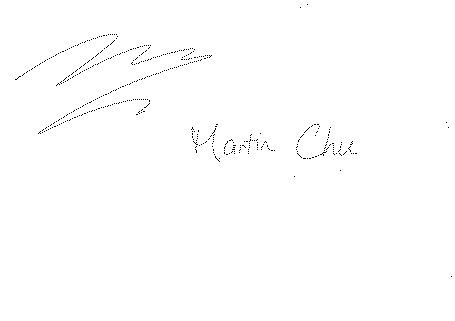 Martin Chu